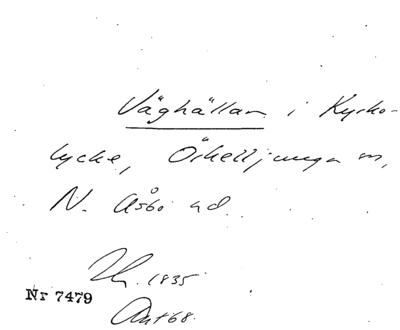 Väghällan i Kyrko-
lycke, Örkelljunga sn,
N. Åsbo hd.
1835
Nr 7479
Ant 68.